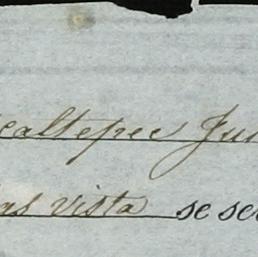 caltepec Jun
as vista se ser